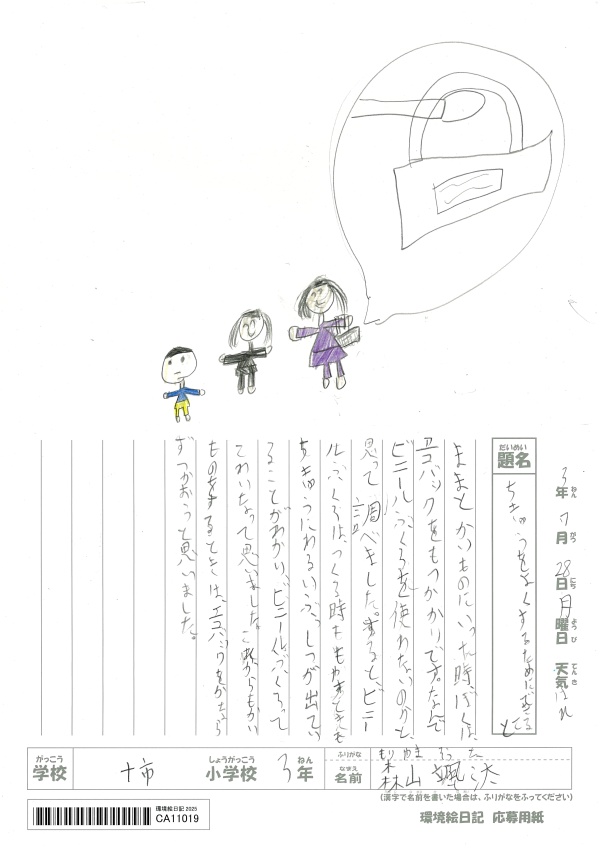 3年7月28日月曜日 天気はれ
ねん がつ にち ようび てんき
だいめい
題名
ちきゅうをよくするためにできること
ままとかいものにいった時、ぼくは、
エコバックをもつかかりです。なんで
ビニールぶくろを使わないのかと、
思って調べました。すると、ビニー
ルぶくろは、つくる時もやすときも
ちきゅうにわるいぶっしつが出てい
ることがわかり、ビニールぶくろって
こわいなって思いました。これからもかい
ものをするときは、エコバックをかなら
ずつかおうと思いました。
がっこう しょうがっこう ねん
学校 十市 小学校 3年
ふりがな もりやま
なまえ
名前 森山 颯汰
(漢字で名前を書いた場合は、ふりがなをふってください)
環境絵日記 2025
CA11019
環境絵日記 応募用紙